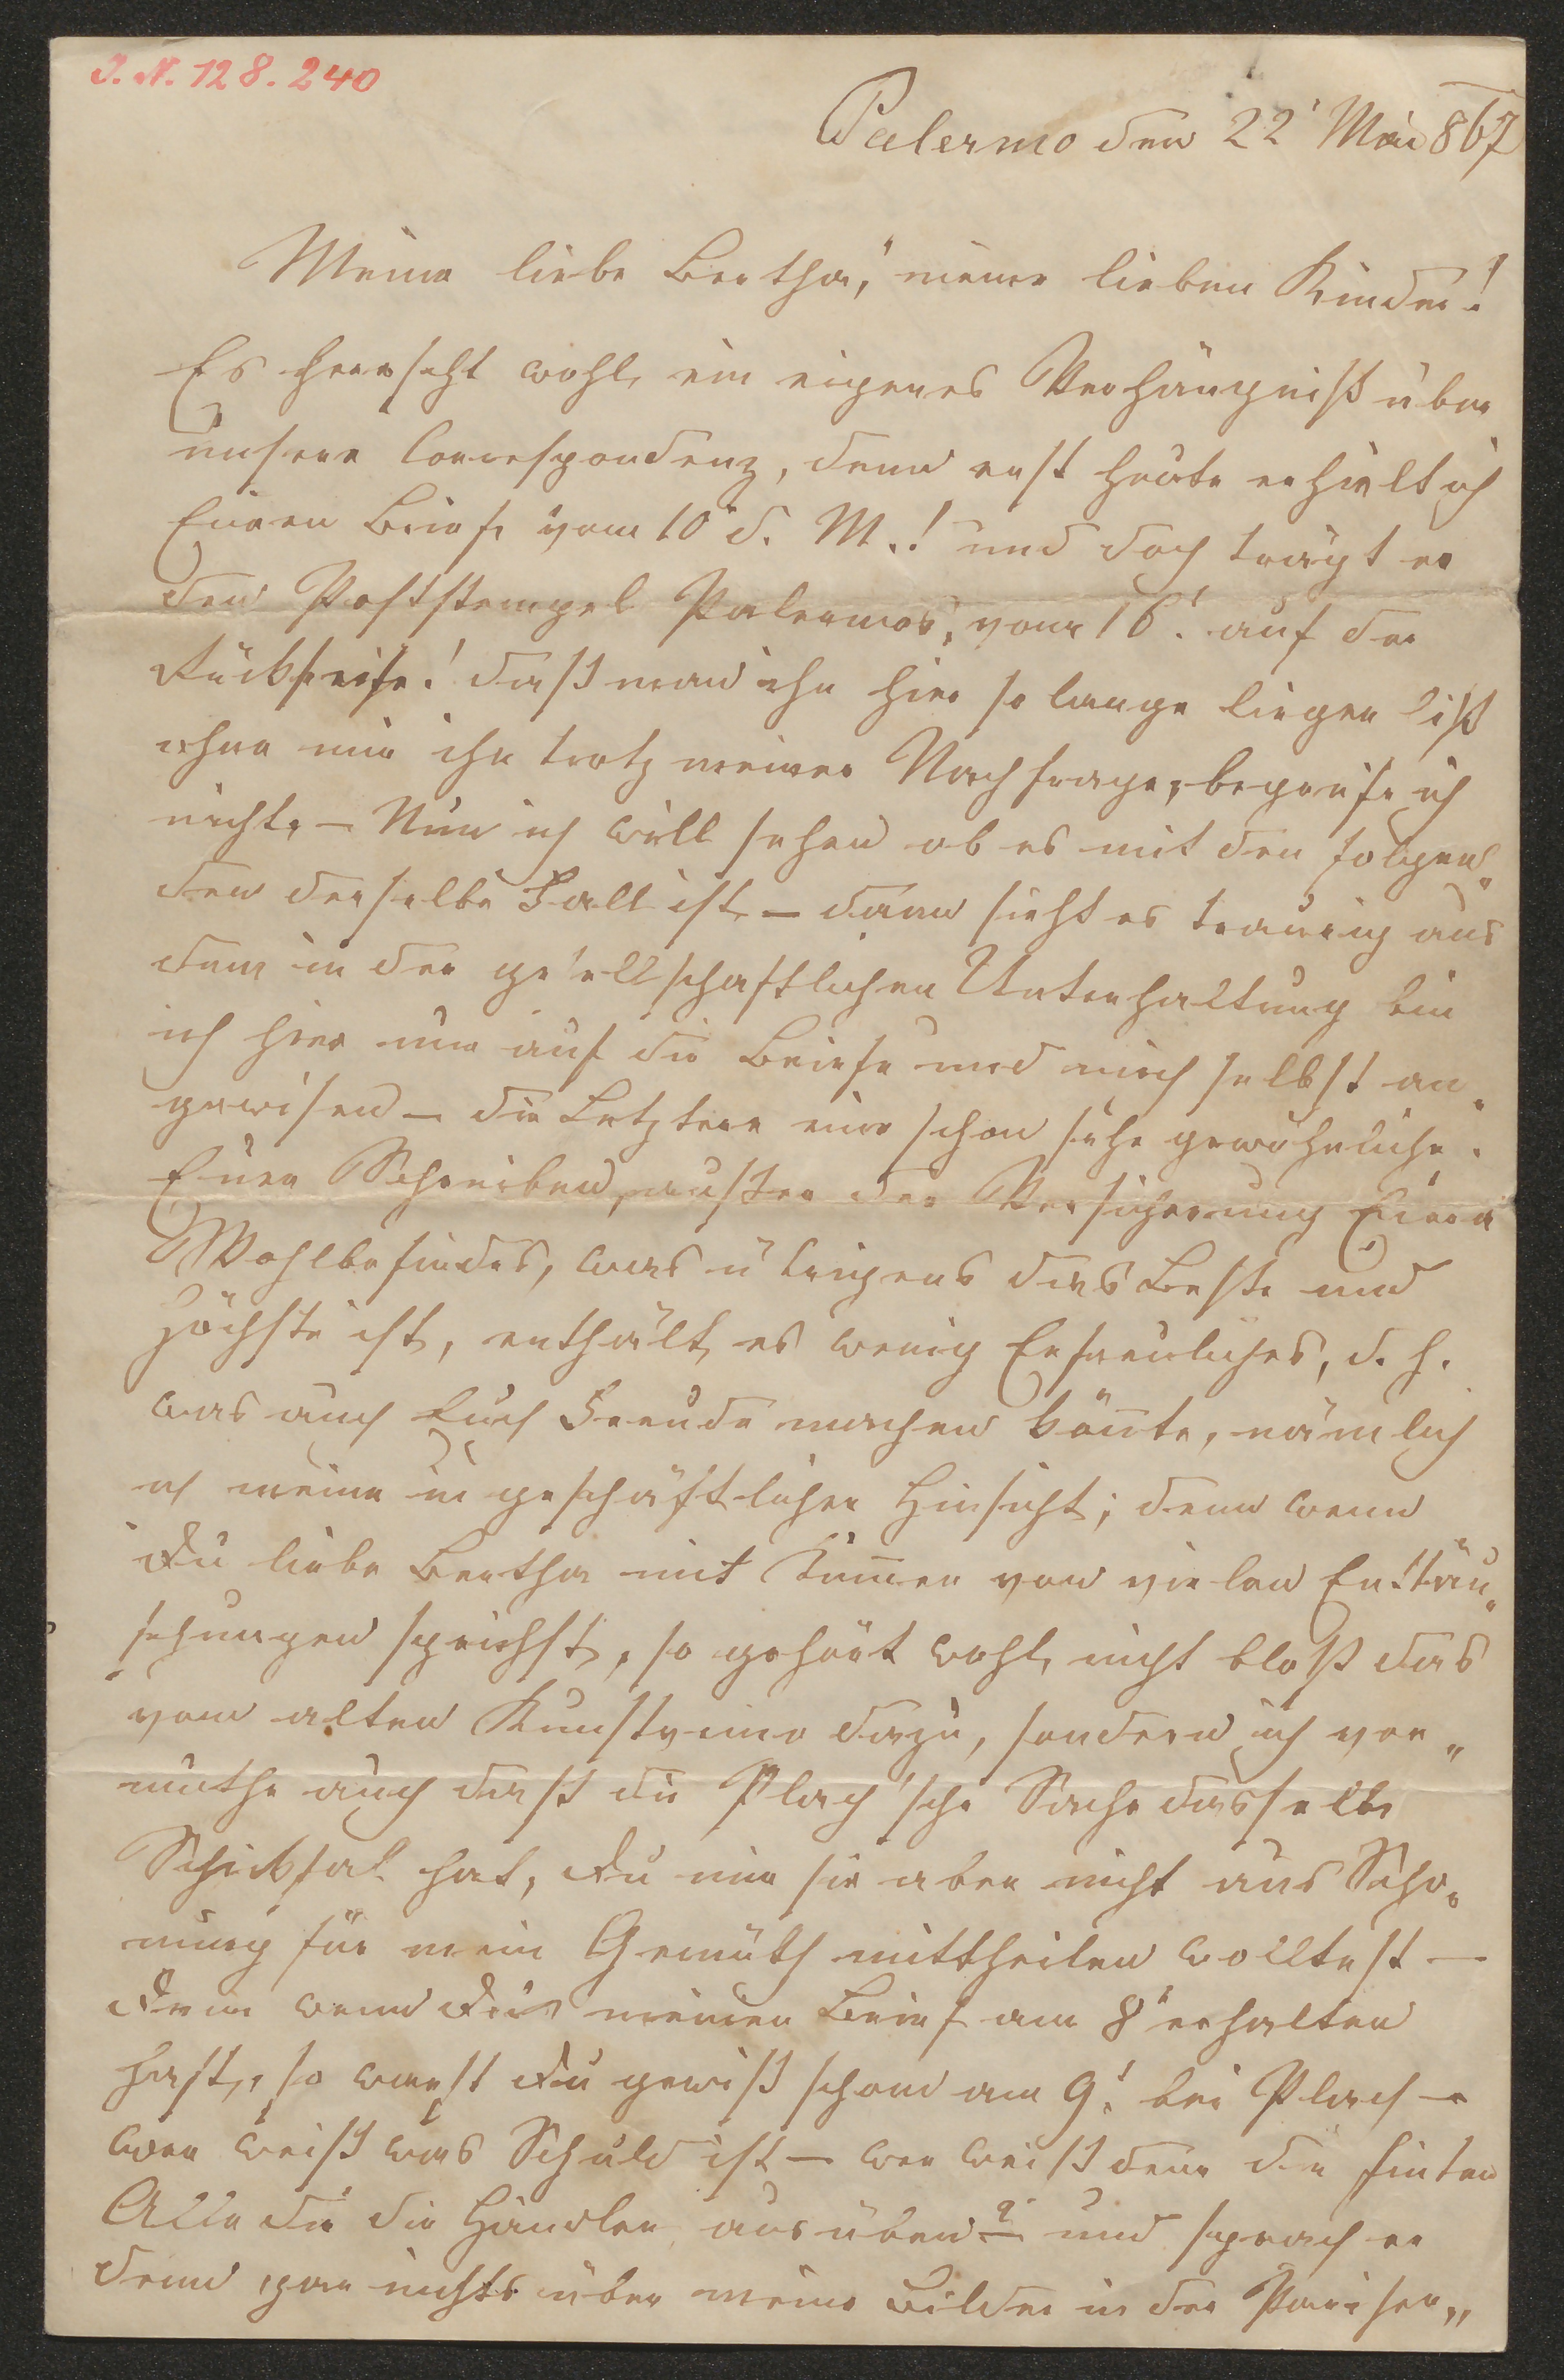 I. N. 128.240
Palermo den 22' Mai 867
Meine liebe Bertha, meine lieben Kinder!
Es herrscht wohl ein eigenes Verhängniß über
unsere Correspondenz, denn erst heute erhielt ich
Euren Brief vom 10' d. M.! und doch trägt er
den Poststempel Palermos, vom 16! auf der
Rückseite! daß man ihn hier so lange liegen ließ
ohne mir ihn trotz meiner Nachfrage, begreife ich
nicht. – Nun ich will sehen ob es mit den folgen„
den derselbe Fall ist – dann sieht es traurig aus
denn in der gesellschaftlichen Unterhaltung bin
ich hier nur auf die Briefe und mich selbst an„
gewiesen – die Letztere eine schon sehr gewöhnliche.
Euer Schreiben, außer der Versicherung Eures
Wohlbefindes, was übrigens das Beste und
Höchste ist, enthält es wenig Erfreuliches, d. h.
was auch Euch Freude machen kön̄te, nämlich
ich meine in geschäftlicher Hinsicht; denn wenn
Du liebe Bertha mit Kum̄er von vielen Enttäu„
schungen sprichst, so gehört wohl nicht bloß das
vom alten Kunstverein dazu, sondern ich ver„
muthe auch daß die Plach'sche Sache dasselbe
Schicksal hat, Du mir sie aber nicht aus Scho„
nung für mein Gemüth mittheilen wolltest –
denn wenn Du meinen Brief am 8' erhalten
hast, so warst Du gewiß schon am 9! bei Plach –
wer weiß was Schuld ist – wer weiß denn die Finten
Alle die die Händler ausüben? und sprach er
denn gar nichts über meine Bilder in der Pariser„